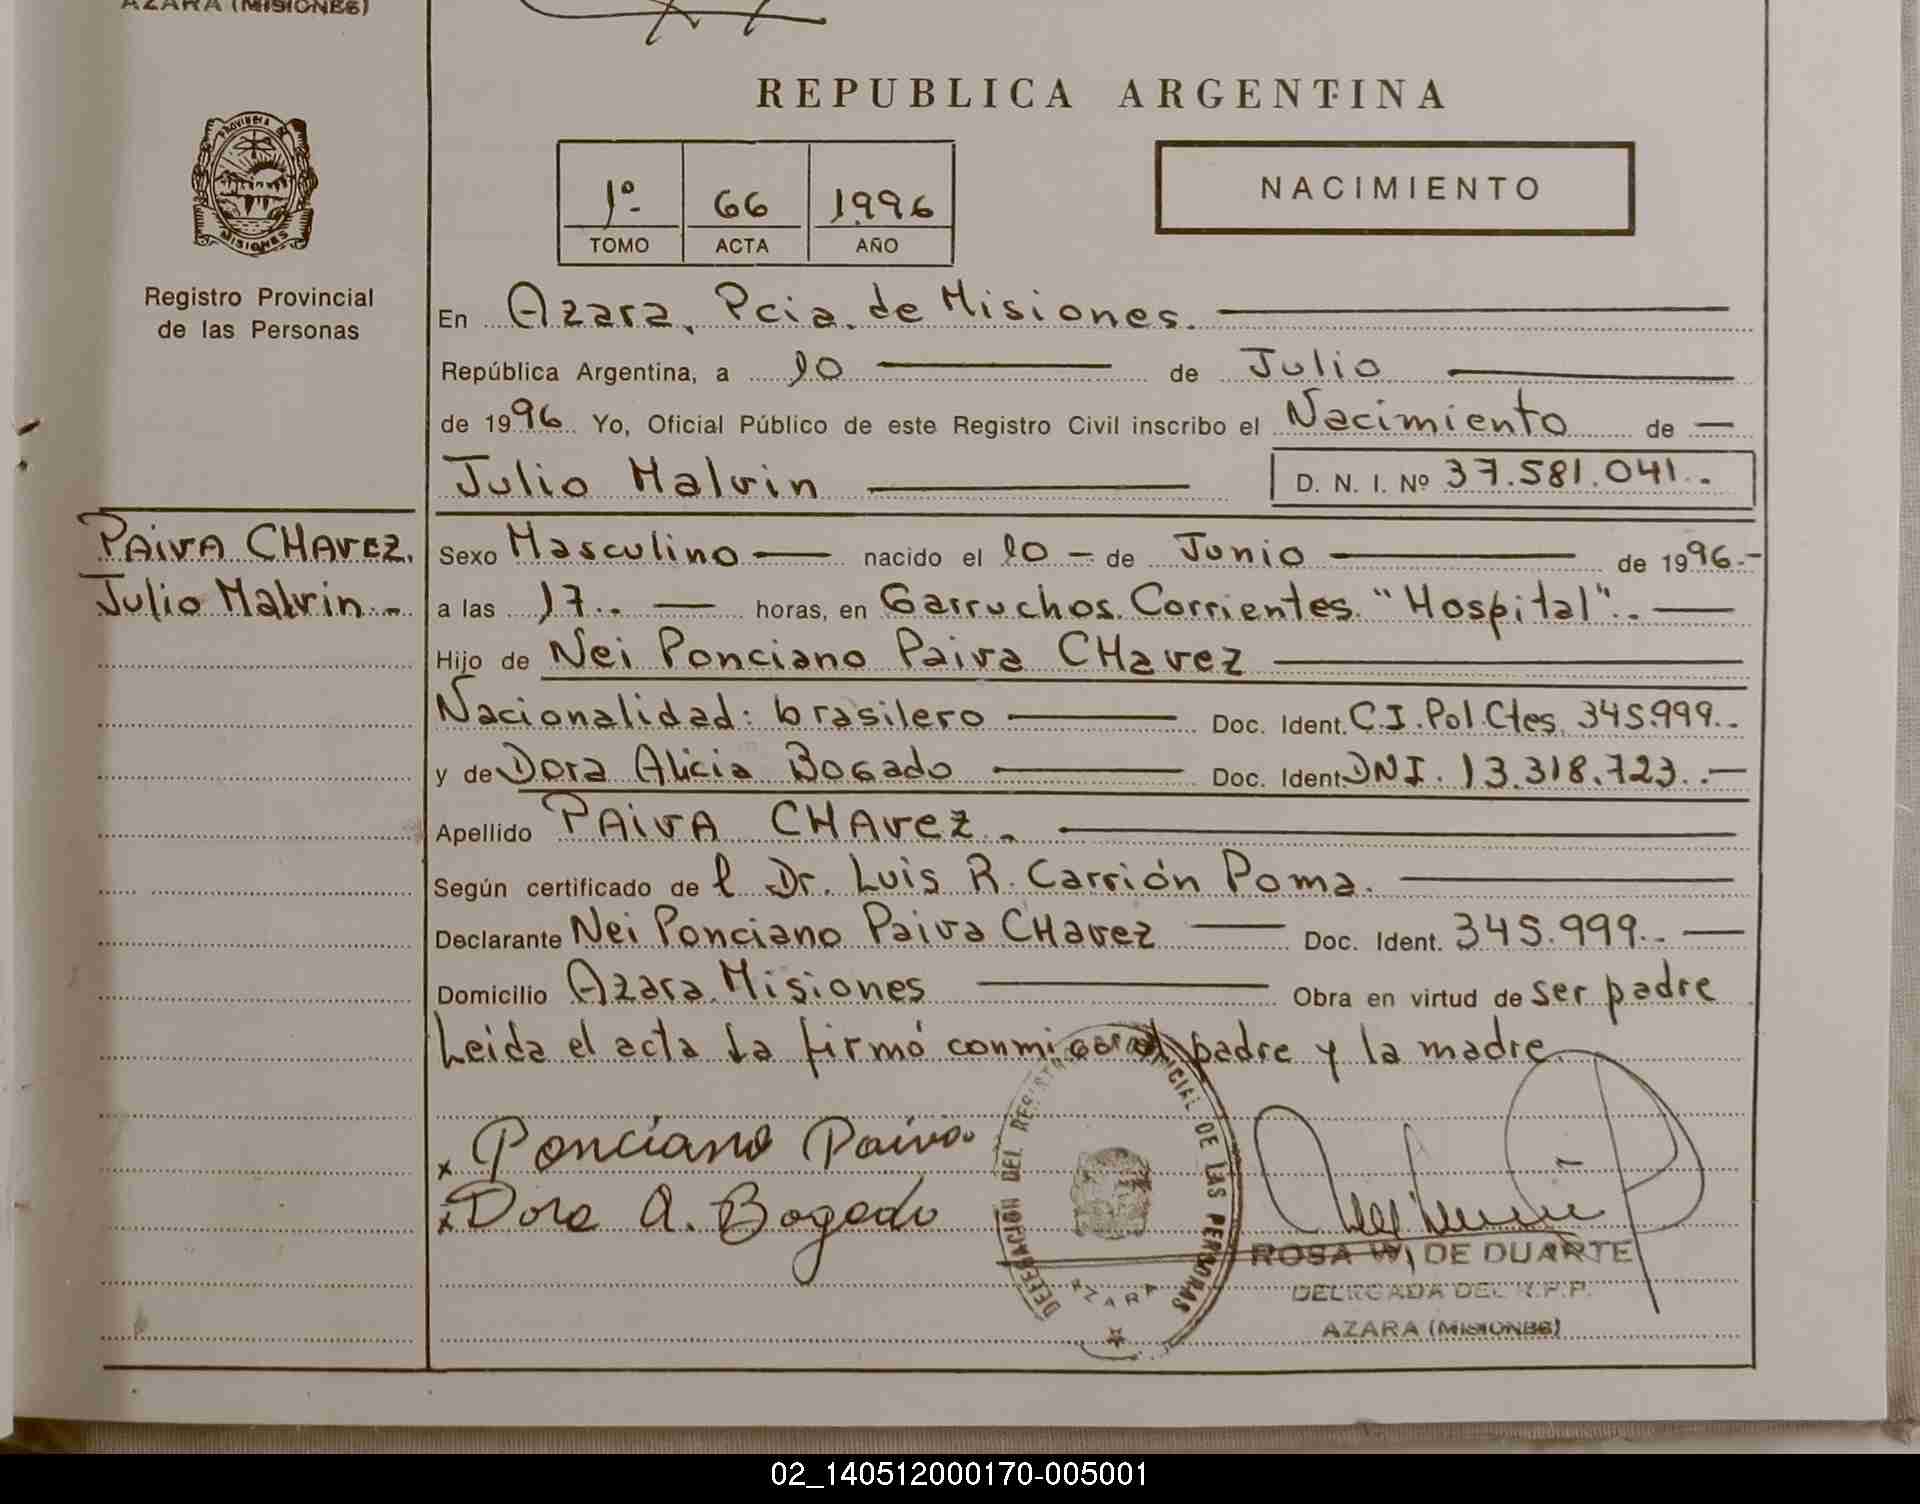 AZARA (MISIONES)
REPUBLICA ARGENTINA
PROVINCIA DE
MISIONES
1º 66 1996
TOMO ACTA AÑO
NACIMIENTO
Registro Provincial
de las Personas
En Azara, Pcia. de Misiones.
República Argentina, a 10 de Julio
de 1996 Yo, Oficial Público de este Registro Civil inscribo el Nacimiento de
Julio Malvin D. N. I. Nº 37.581.041.-
PAIVA CHAVEZ,
Julio Malvin.-
Sexo Masculino nacido el 10 - de Junio de 1996.-
a las 17.. horas, en Garruchos. Corrientes. "Hospital".-
Hijo de Nei Ponciano Paiva CHavez
Nacionalidad: brasilero Doc. Ident. C.I. Pol. Ctes. 345.999.-
y de Dora Alicia Bogado Doc. Ident. DNI. 13.318.723.-
Apellido PAIVA CHAVEZ.
Según certificado de l Dr. Luis R. Carrión Poma.
Declarante Nei Ponciano Paiva CHavez Doc. Ident. 345.999.-
Domicilio Azara, Misiones Obra en virtud de ser padre
Leida el acta La firmó conmigo el padre y la madre
x Ponciano Paiva
x Dora A. Bogado
DELEGACION DEL REGISTRO PROVINCIAL DE LAS PERSONAS
AZARA
ROSA W. DE DUARTE
DELEGADA DEL R.P.P.
AZARA (MISIONES)
02_140512000170-005001